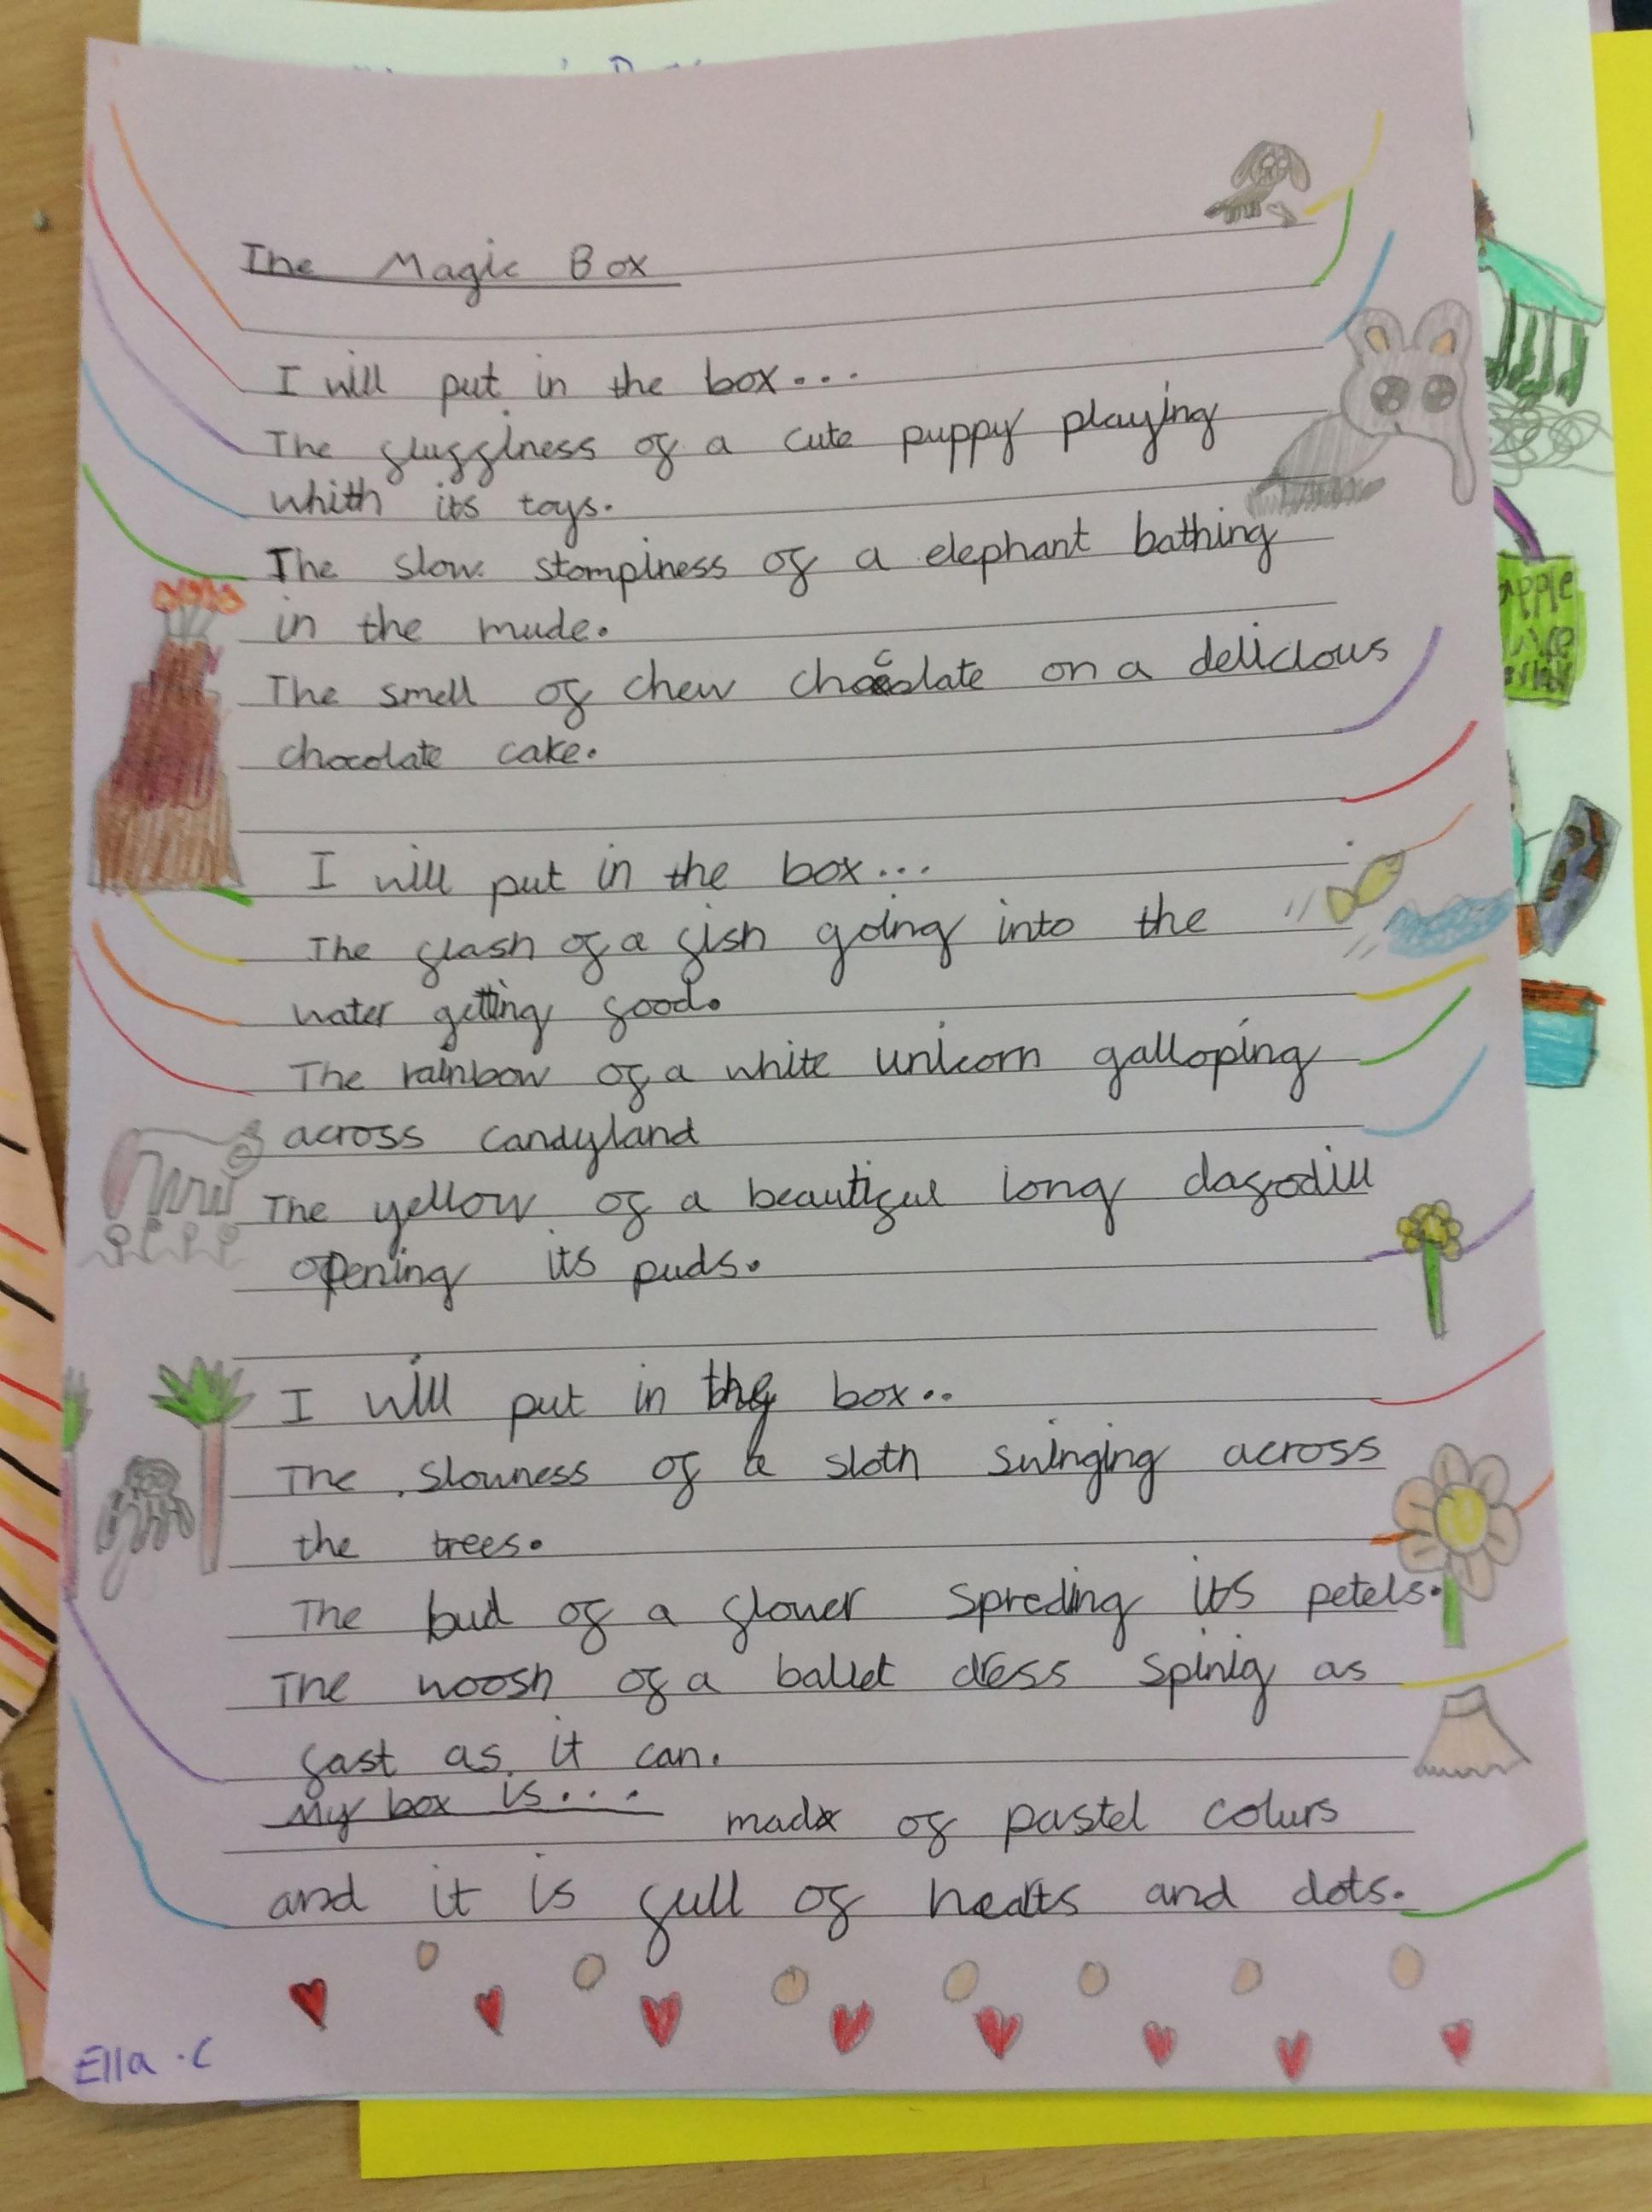 The Magic Box
I will put in the box...
The fluffiness of a cute puppy playing
whith its toys.
The slow stompiness of a elephant bathing
in the mude.
The smell of chew chocolate on a delicious
chocolate cake.
I will put in the box...
The flash of a fish going into the
water getting food.
The rainbow of a white unicorn galloping
across candyland
The yellow of a beautiful long daffodill
opening its puds.
I will put in the box..
The slowness of a sloth swinging across
the trees.
The bud of a flower spreding its petels.
The woosh of a ballet dress spinig as
fast as it can.
My box is... made of pastel colurs
and it is full of hearts and dots.
Ella .C
apple